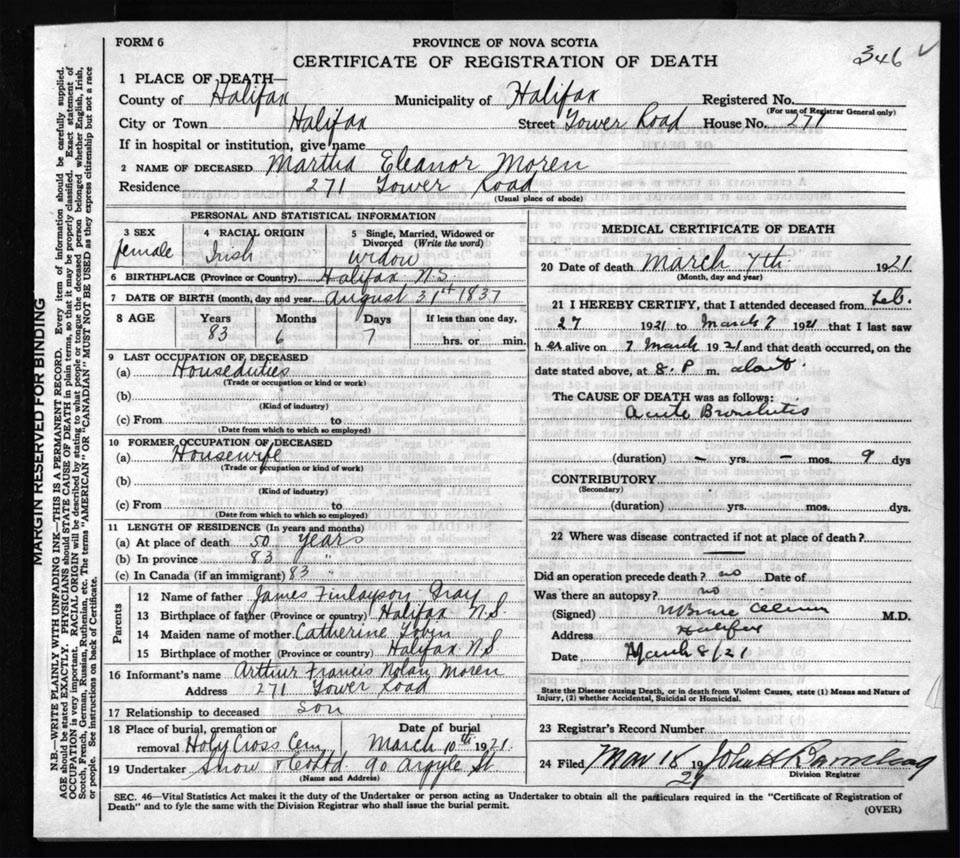 FORM 6
PROVINCE OF NOVA SCOTIA
346
CERTIFICATE OF REGISTRATION OF DEATH
1 PLACE OF DEATH—
County of Halifax Municipality of Halifax Registered No.
(For use of Registrar General only)
City or Town Halifax Street Tower Road House No. 271
If in hospital or institution, give name
2 NAME OF DECEASED Martha Eleanor Moren
Residence 271 Tower Road
(Usual place of abode)
PERSONAL AND STATISTICAL INFORMATION
3 SEX 4 RACIAL ORIGIN 5 Single, Married, Widowed or Divorced (Write the word)
female Irish widow
6 BIRTHPLACE (Province or Country) Halifax N.S.
7 DATE OF BIRTH (month, day and year) August 31st 1837
8 AGE Years Months Days If less than one day,
83 6 7 hrs. or min.
9 LAST OCCUPATION OF DECEASED
(a) Houseduties
(Trade or occupation or kind or work)
(b)
(Kind of industry)
(c) From to
(Date from which to which so employed)
10 FORMER OCCUPATION OF DECEASED
(a) Housewife
(Trade or occupation or kind of work)
(b)
(Kind of industry)
(c) From to
(Date from which to which so employed)
11 LENGTH OF RESIDENCE (In years and months)
(a) At place of death 50 years
(b) In province 83 "
(c) In Canada (if an immigrant) 83 "
Parents
12 Name of father James Finlayson Gray
13 Birthplace of father (Province or country) Halifax N.S.
14 Maiden name of mother Catherine Tobin
15 Birthplace of mother (Province or country) Halifax N.S.
16 Informant's name Arthur Francis Nolan Moren
Address 271 Tower Road
17 Relationship to deceased Son
18 Place of burial, cremation or removal Holy Cross Cem. Date of burial March 10th 1921.
19 Undertaker Snow & Co Ltd. 90 Argyle St
(Name and Address)
MEDICAL CERTIFICATE OF DEATH
20 Date of death March 7th 1921
(Month, day and year)
21 I HEREBY CERTIFY, that I attended deceased from Feb.
27 1921 to March 7 1921 that I last saw
h er alive on 7 March 1921 and that death occurred, on the
date stated above, at 8. P m. about.
The CAUSE OF DEATH was as follows:
Acute Bronchitis
(duration) – yrs. – mos. 9 dys
CONTRIBUTORY
(Secondary)
(duration) yrs. mos. dys.
22 Where was disease contracted if not at place of death?
Did an operation precede death? no Date of
Was there an autopsy? no
(Signed) M.D.
Address Halifax
Date March 8/21
State the Disease causing Death, or in death from Violent Causes, state (1) Means and Nature of Injury, (2) whether Accidental, Suicidal or Homicidal.
23 Registrar's Record Number
24 Filed 19 John H
Division Registrar
SEC. 46—Vital Statistics Act makes it the duty of the Undertaker or person acting as Undertaker to obtain all the particulars required in the "Certificate of Registration of
Death" and to fyle the same with the Division Registrar who shall issue the burial permit.
(OVER)
MARGIN RESERVED FOR BINDING
N.B.—WRITE PLAINLY WITH UNFADING INK—THIS IS A PERMANENT RECORD. Every item of information should be carefully supplied.
AGE should be stated EXACTLY. PHYSICIANS should STATE CAUSE OF DEATH in plain terms, so that it may be properly classified. Exact statement of
OCCUPATION is very important. RACIAL ORIGIN will be described by stating to what people or tongue the deceased person belonged whether English, Irish,
Scotch, French, German, Russian, Ruthenian, etc. The terms "AMERICAN" OR "CANADIAN" MUST NOT BE USED as they express citizenship but not a race
or people. See instructions on back of Certificate.